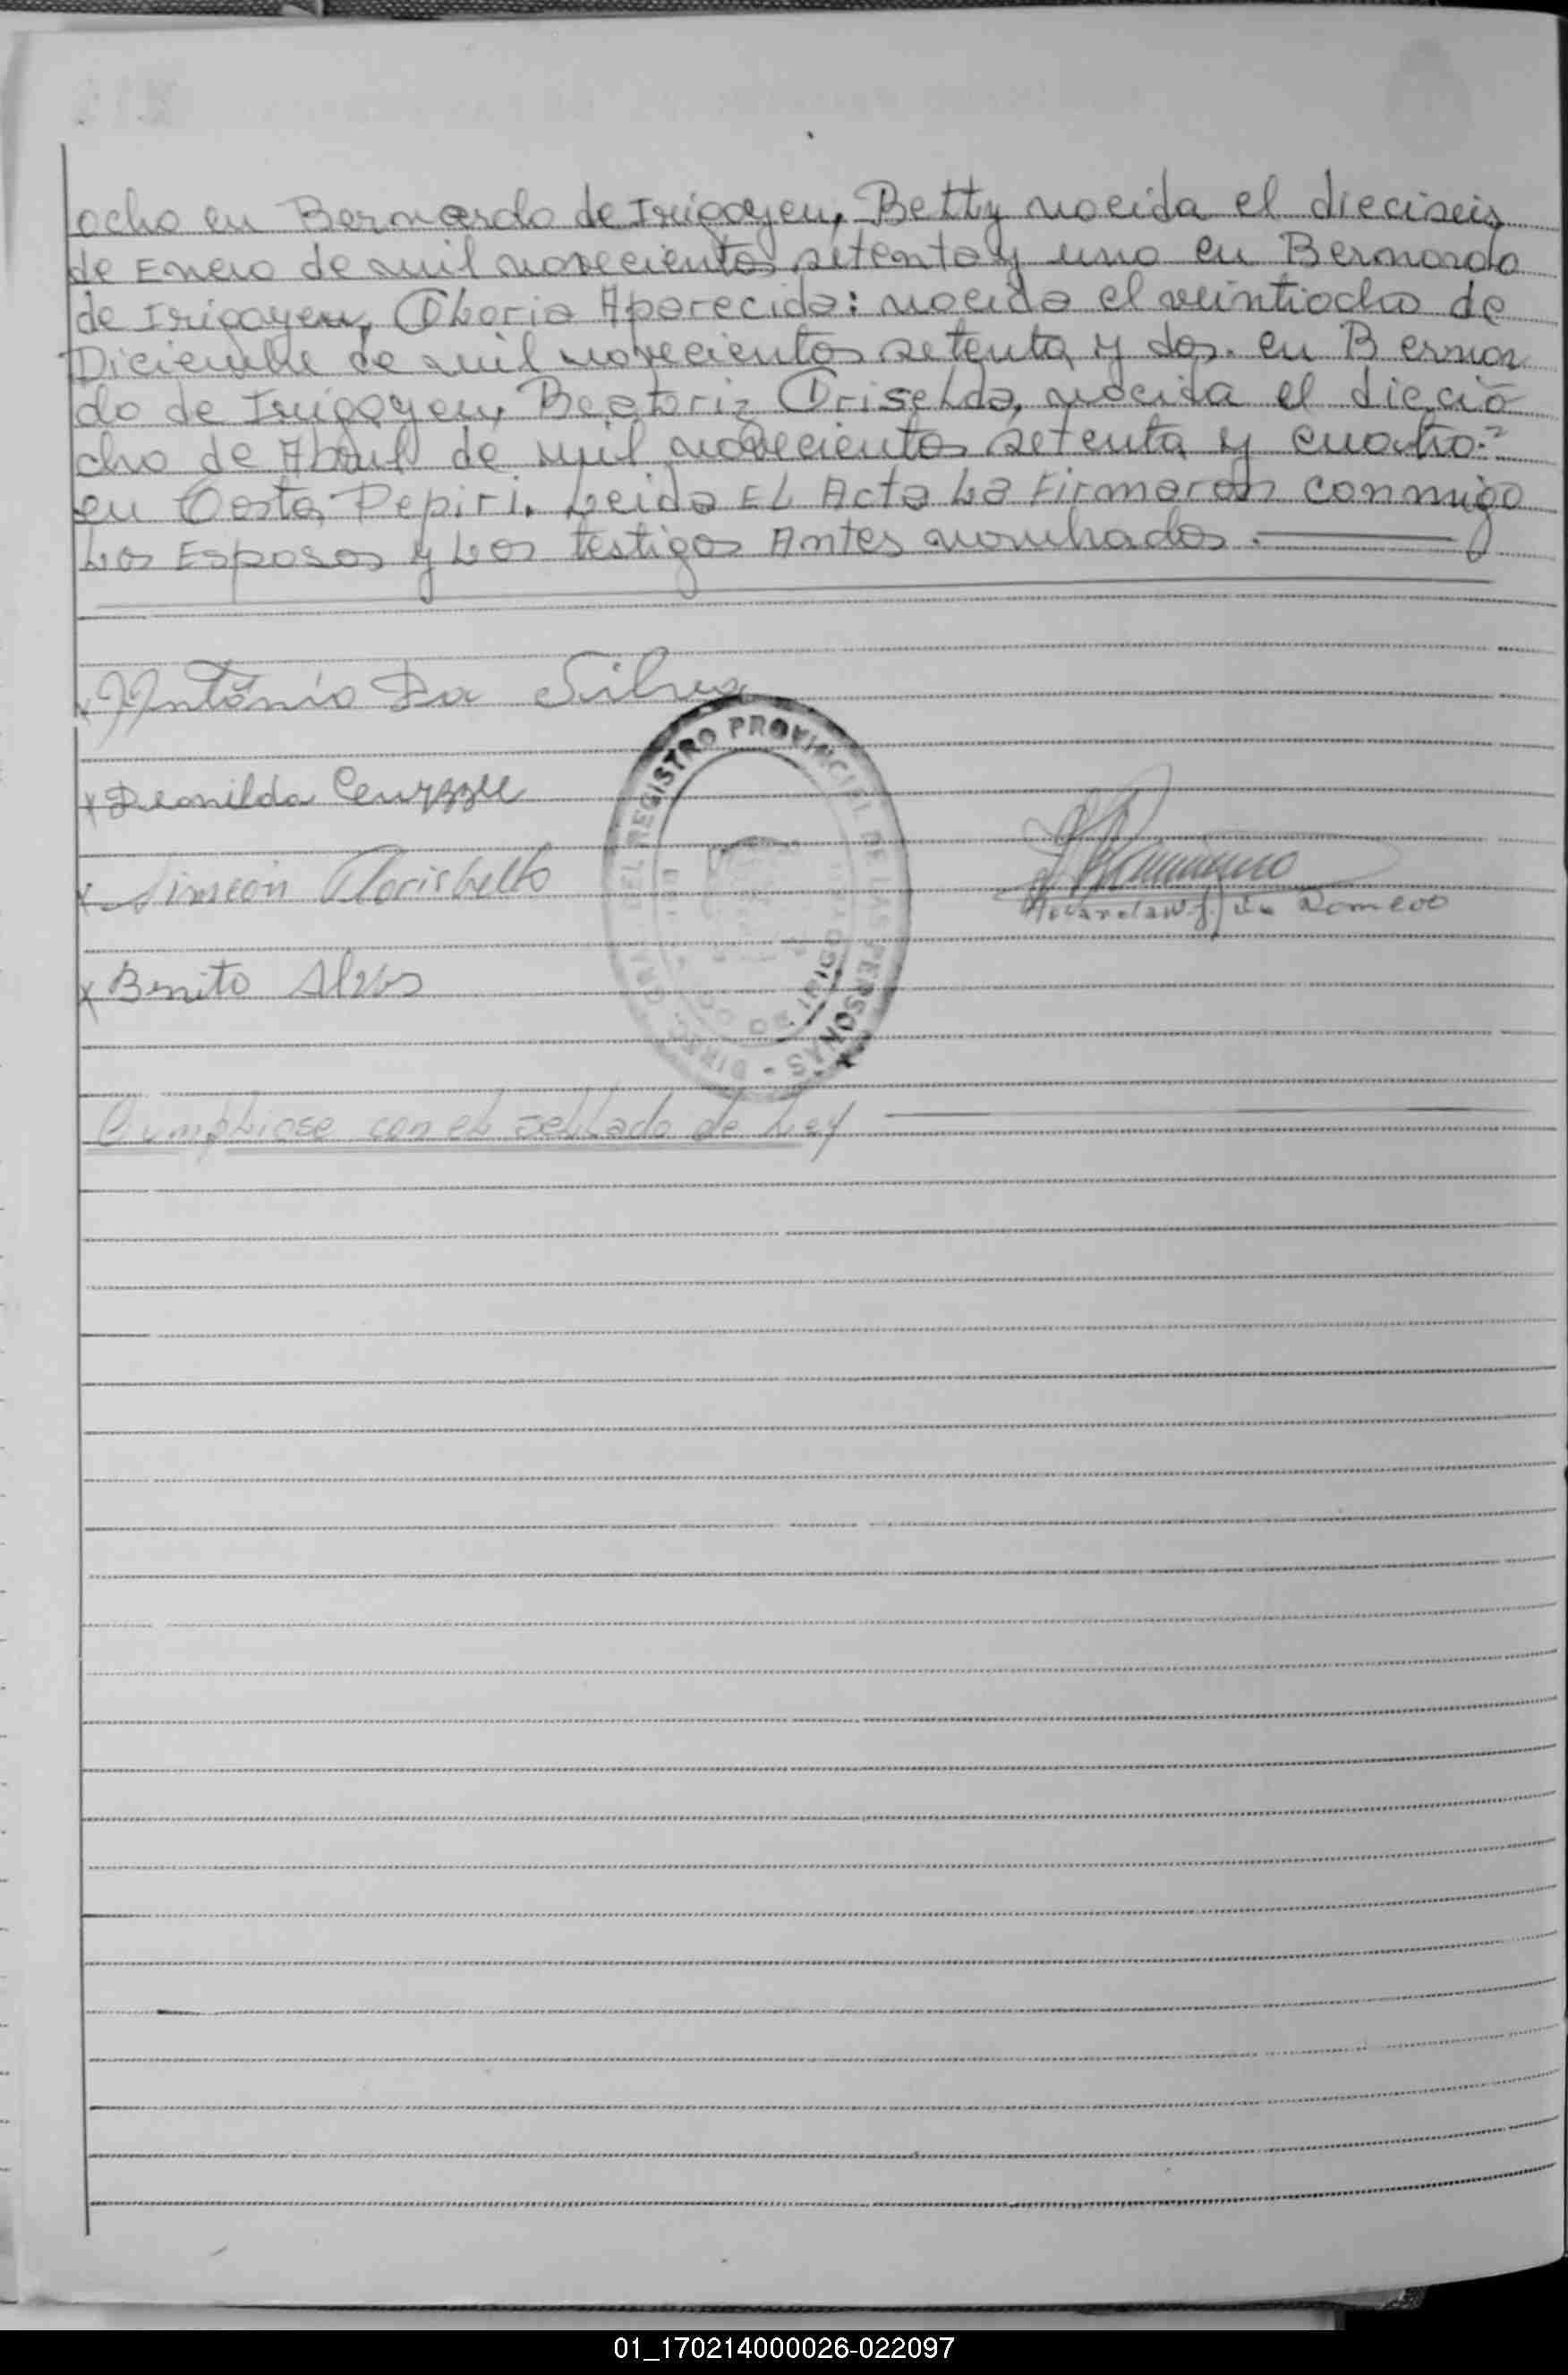 ocho en Bernardo de Irigoyen, Betty nacida el dieciseis
de Enero de mil novecientos setenta y uno en Bernardo
de Irigoyen, Gloria Aparecida: nacida el veintiocho de
Diciembre de mil novecientos setenta y dos. en Bernar
do de Irigoyen, Beatriz Griselda, nacida el diecio
cho de Abril de mil novecientos setenta y cuatro.=
en Costa Pepiri. Leida EL Acta La Firmaron conmigo
Los Esposos y Los testigos Antes nombrados.
x Antônio Da Silva
x Deonilda
x Simeón Floribelto
x Benito Alves
de Romero
REGISTRO PROVINCIAL DE LAS PERSONAS - DIRECCION
Cumpliose con el sellado de Ley
01_170214000026-022097